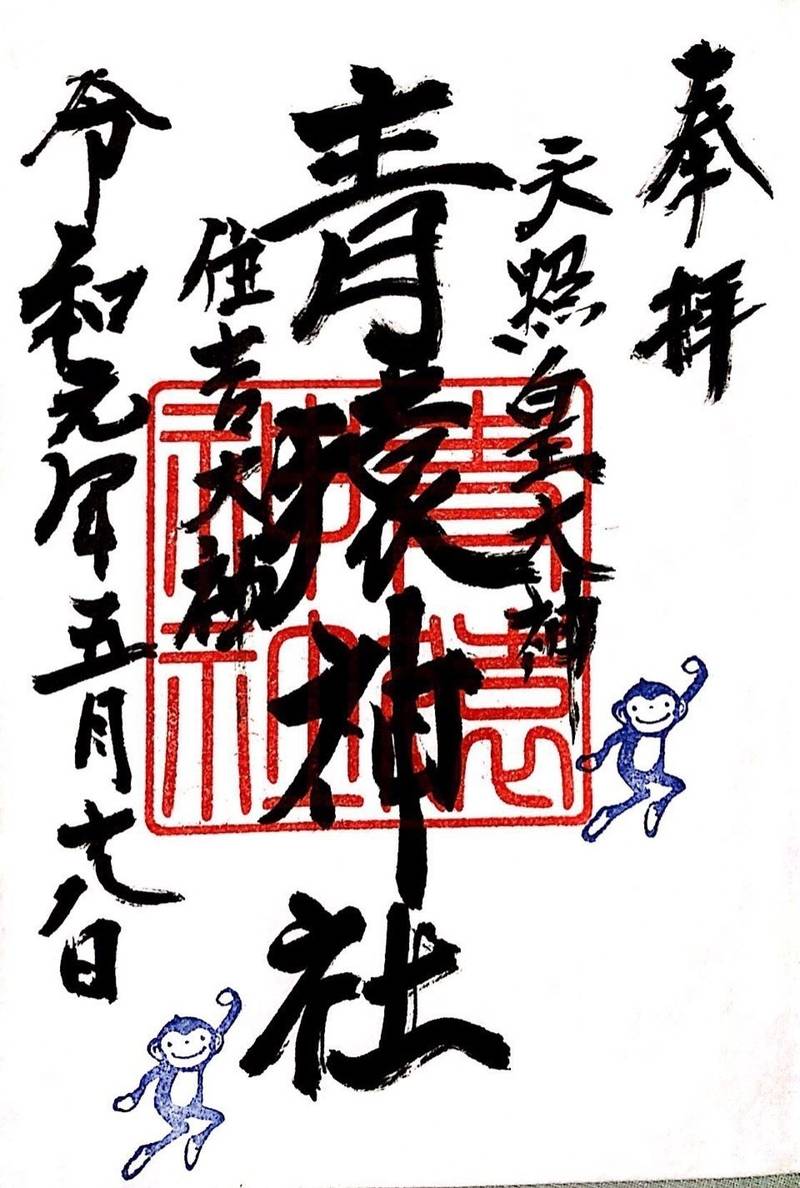 奉拝
天照皇大神
青猿神社
住吉大神
令和元年五月十八日
青猿
神社